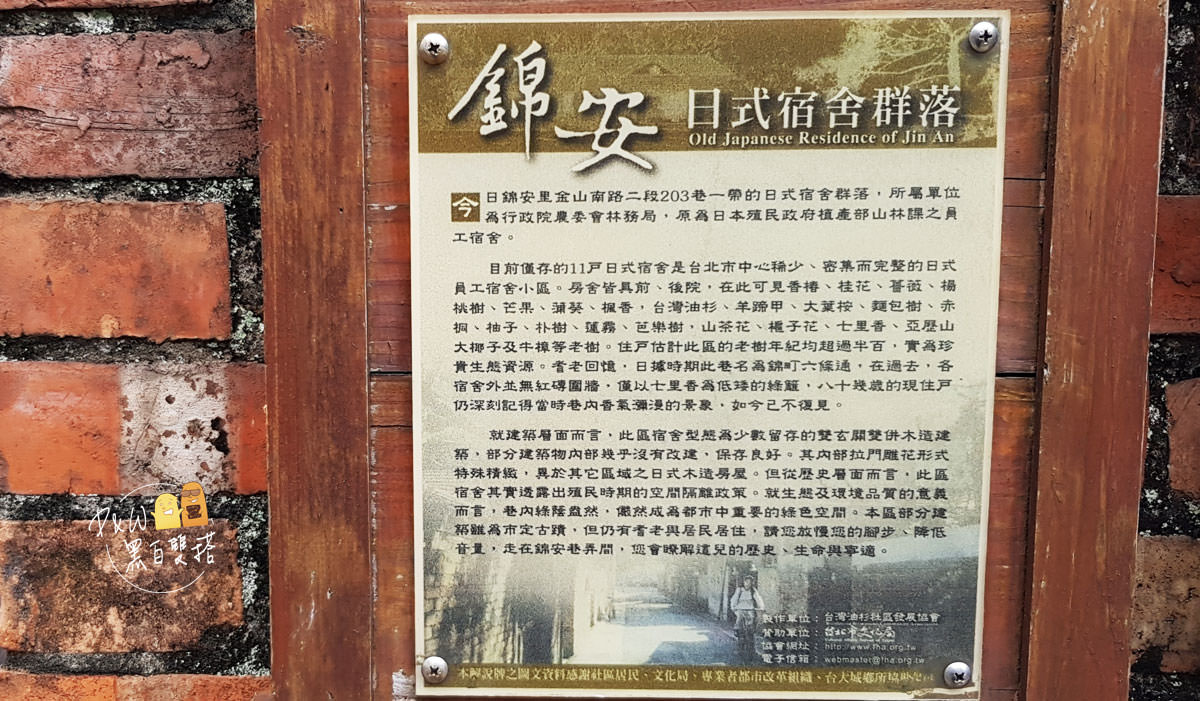 錦安
日式宿舍群落
Old Japanese Residence of Jin An
今日錦安里金山南路二段203巷一帶的日式宿舍群落，所屬單位
為行政院農委會林務局，原為日本殖民政府植產部山林課之員
工宿舍。
目前僅存的11戶日式宿舍是台北市中心稀少、密集而完整的日式
員工宿舍小區。房舍皆具前、後院，在此可見香椿、桂花、薔薇、楊
桃樹、芒果、蒲葵、楓香，台灣油杉、羊蹄甲、大葉桉、麵包樹、赤
桐、柚子、朴樹、蓮霧、芭樂樹，山茶花、梔子花、七里香、亞歷山
大椰子及牛樟等老樹。住戶估計此區的老樹年紀均超過半百，實為珍
貴生態資源。耆老回憶，日據時期此巷名為錦町六條通，在過去，各
宿舍外並無紅磚圍牆，僅以七里香為低矮的綠籬，八十幾歲的現住戶
仍深刻記得當時巷內香氣瀰漫的景象，如今已不復見。
就建築層面而言，此區宿舍型態為少數留存的雙玄關雙併木造建
築，部分建築物內部幾乎沒有改建，保存良好。其內部拉門雕花形式
特殊精緻，異於其它區域之日式木造房屋。但從歷史層面而言，此區
宿舍其實透露出殖民時期的空間隔離政策。就生態及環境品質的意義
而言，巷內綠蔭盎然，儼然成為都市中重要的綠色空間。本區部分建
築雖為市定古蹟，但仍有耆老與居民居住，請您放慢您的腳步、降低
音量，走在錦安巷弄間，您會瞭解這兒的歷史、生命與寧適。
製作單位：台灣油杉社區發展協會
贊助單位：台北市文化局
協會網址：http://www.tha.org.tw
電子信箱：webmaster@tha.org.tw
本解說牌之圖文資料感謝社區居民、文化局、專業者都市改革組織、台大城鄉所協助
P&W
黑白雙搭